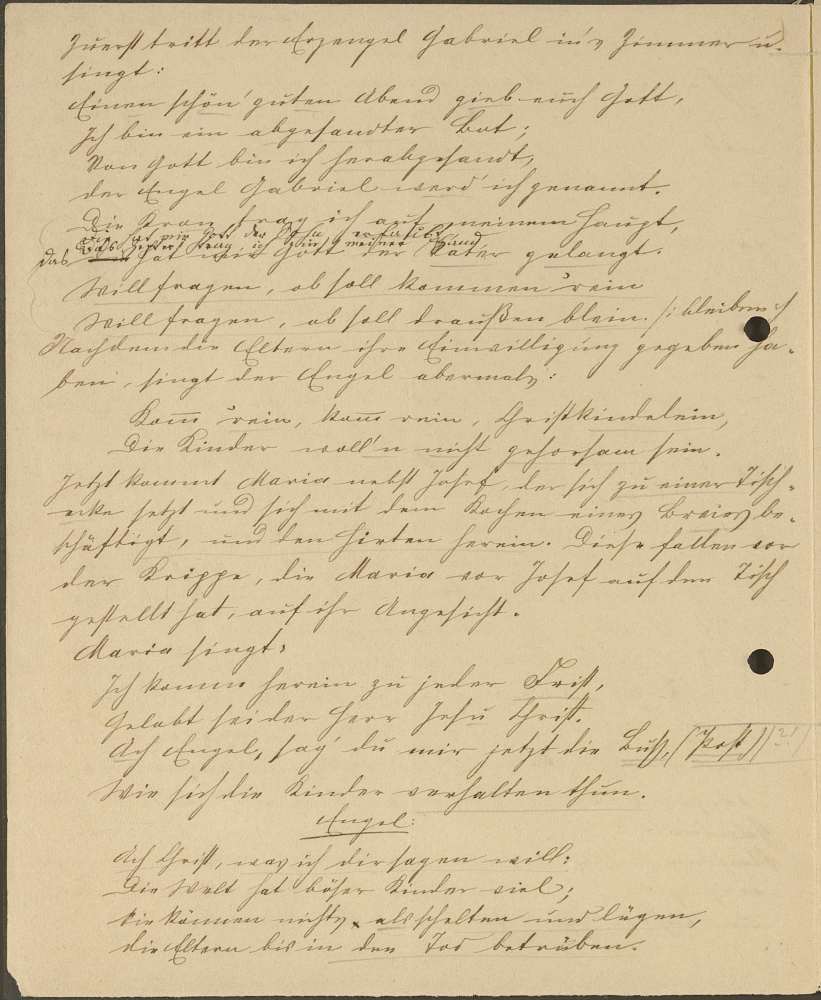 Zuerst tritt der Erzengel Gabriel in's Zimmer u.
singt:
Einen schön' guten Abend gieb euch Gott,
Ich bin ein abgesandter Bot;
Von Gott bin ich herabgesandt,
der Engel Gabriel werd' ich genannt.
Die Kron trag ich auf meinem Haupt,
Die hat mir Gott der Sohn erlaubt,
Das Zepter trag ich in meiner Hand
das hat mir Gott der Vater gelangt.
Will fragen, ob soll kommen 'rein
Will fragen, ob soll draußen blein. /: bleiben :/
Nachdem die Eltern ihre Einwilligung gegeben ha-
ben, singt der Engel abermals:
Kom̄ 'rein, kom̄ rein, Christkindelein,
Die Kinder woll'n nicht gehorsam sein.
Jetzt kommt Maria nebst Josef, der sich zu einer Tisch-
ecke setzt und sich mit dem Kochen eines Breies be-
schäftigt, und den Hirten herein. Diese fallen vor
der Krippe, die Maria vor Josef auf den Tisch
gestellt hat, auf ihr Angesicht.
Maria singt:
Ich komm herein zu jeder Frist,
Gelobt sei der Herr Jesu Christ.
Ach Engel, sag' du mir jetzt die Buss, (Post)) 2!)
Wie sich die Kinder verhalten thun.
Engel:
Ach Christ, was ich dir sagen will:
Die Welt hat böser Kinder viel;
sie können nichts als schelten und lügen,
die Eltern bis in den Tod betrüben.